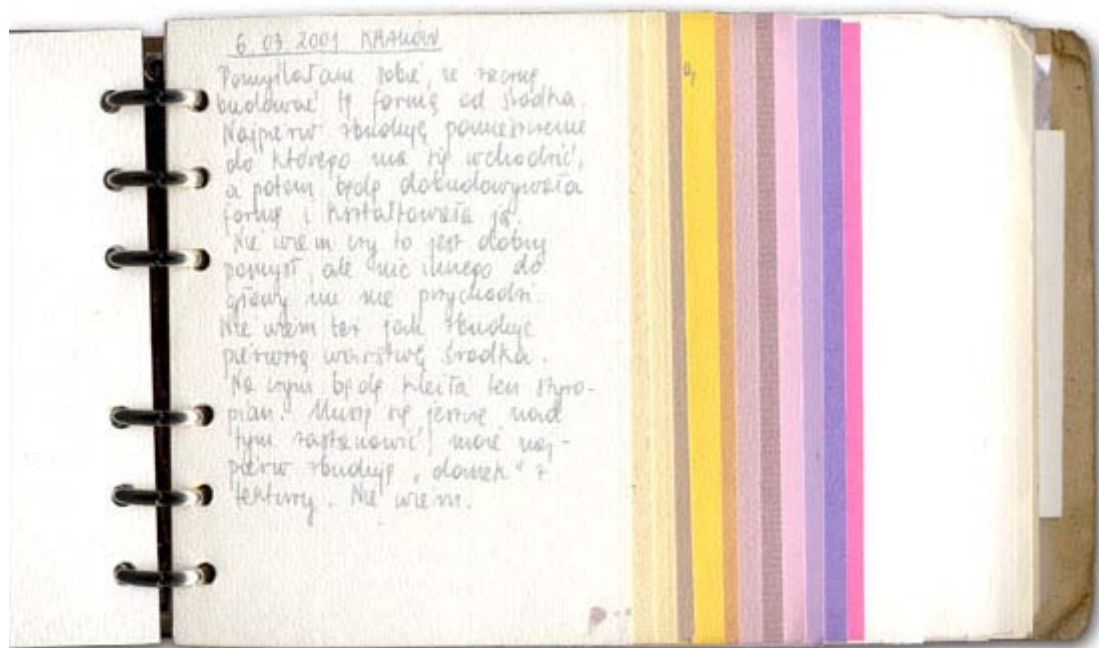 6.03 2001 KRAKÓW
Pomyślałam sobie, że zacznę
budować tę formę od środka.
Najpierw zbuduję pomieszczenie
do którego ma się wchodzić,
a potem będę dobudowywała
formę i kształtowała ją.
Nie wiem czy to jest dobry
pomysł, ale nic innego do
głowy mi nie przychodzi.
Nie wiem też jak zbuduję
pierwszą warstwę środka.
Na czym będę kleiła ten styro-
pian. Muszę się jeszcze nad
tym zastanowić, może naj-
pierw zbuduję „domek" z
tektury. Nie wiem.